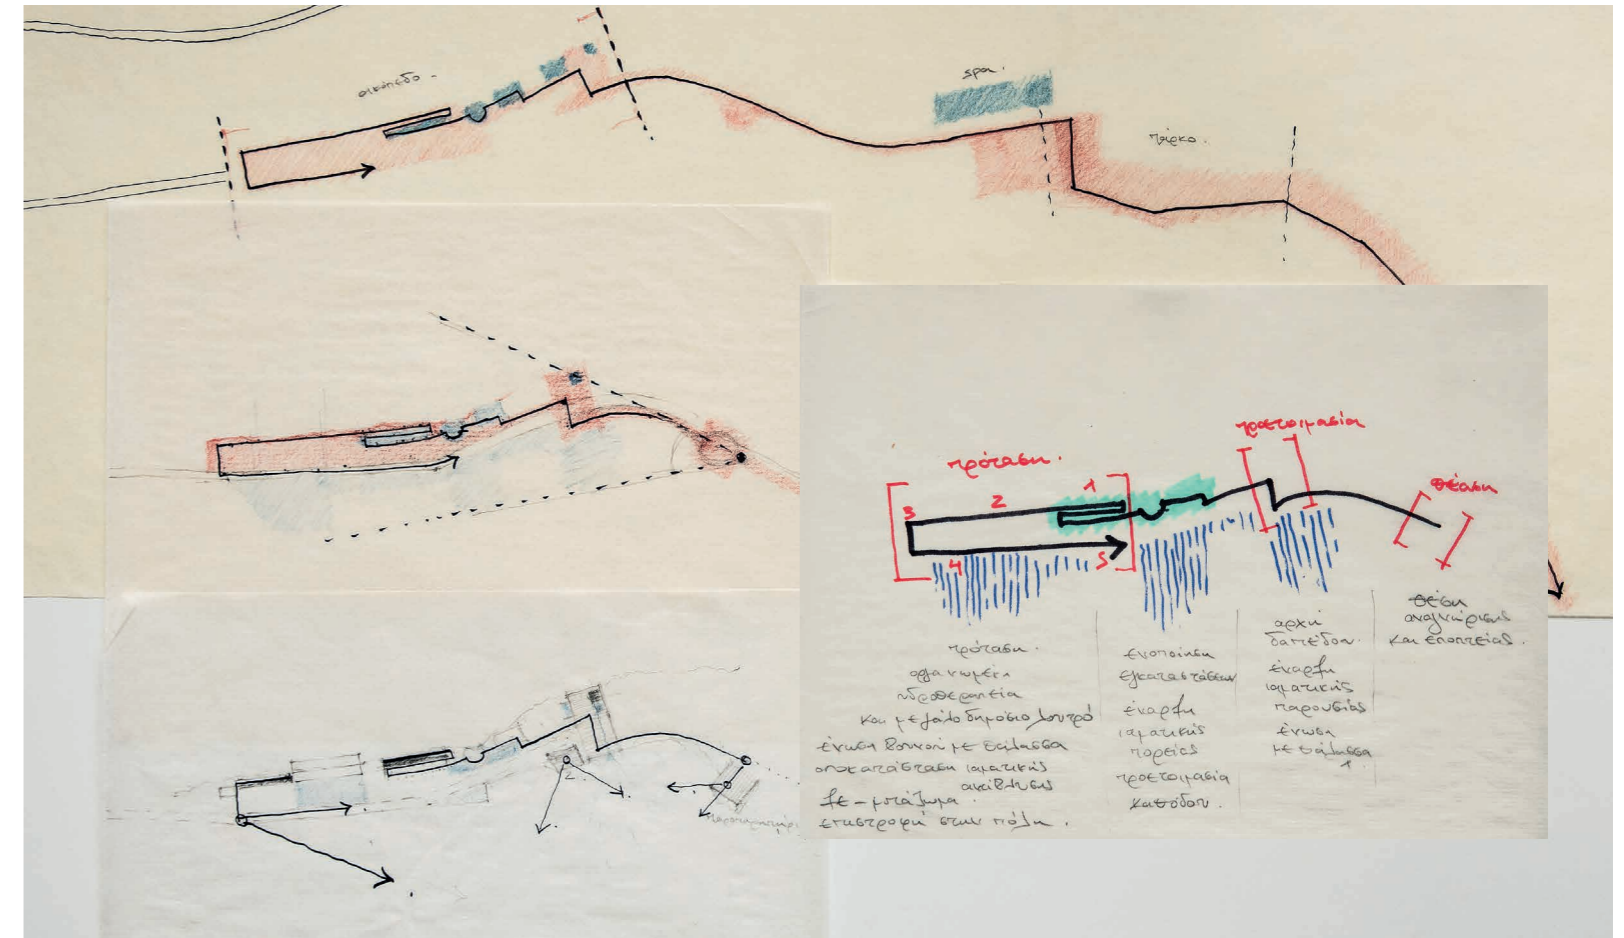 οικόπεδο.
spa.
πάρκο.
2.
παρατηρητήριο
προετοιμασία
πρόταση.
θέαση
1
2
3
4
5
πρόταση.
οργανωμένη
υδροθεραπεία
και μεγάλο δημόσιο λουτρό
ένωση βουνού με θάλασσα
αποκατάσταση ιαματικής
ανάβλυσης
ξε-μπάζωμα.
επιστροφή στην πόλη.
ενοποίηση
εγκαταστάσεων
έναρξη
ιαματικής
πορείας
προετοιμασία
καθόδου.
αρχή
δαπέδου.
έναρξη
ιαματικής
παρουσίας
ένωση
με θάλασσα
θέση
αναγνώρισης
και εποπτείας.